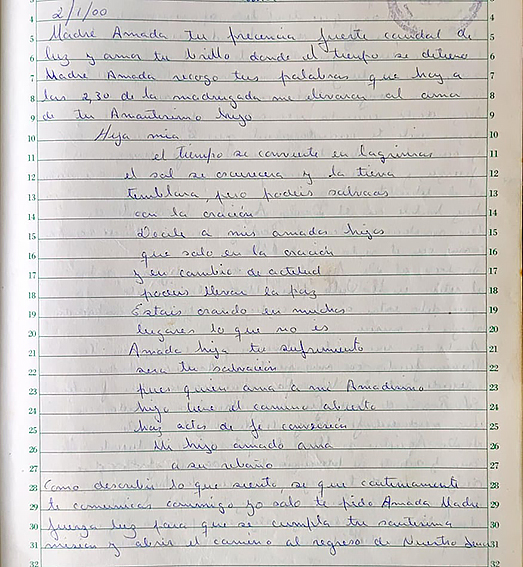 2/1/00
Madre Amada tu precencia fuerte caudal de
luz y amor tu brillo donde el tiempo se detiene
Madre Amada recogo tus palabras que hoy a
las 2,30 de la madrugada me llevaran al amor
de tu Amantisimo hijo
Hija mia
el tiempo se convierte en lagrimas
el sol se oscurecera y la tierra
temblara, pero podeis salvaros
con la oración
Decile a mis amados hijos
que solo en la oración
y en cambio de actitud
podeis llevar la paz
Estais orando en muchos
lugares lo que no es
Amada hija tu sufrimiento
sera tu salvación
pues quien ama a mi Amadisimo
hijo tiene el camino abierto
haz actos de fe conversion
Mi hijo amado ama
a su rebaño
Como describir lo que siento se que continuamente
te comunicas conmigo yo solo te pido Amada Madre
fuerza luz para que se cumpla tu santisima
mision y abrir el camino al regreso de Nuestro
4
5
6
7
8
9
10
11
12
13
14
15
16
17
18
19
20
21
22
23
24
25
26
27
28
29
30
31
32